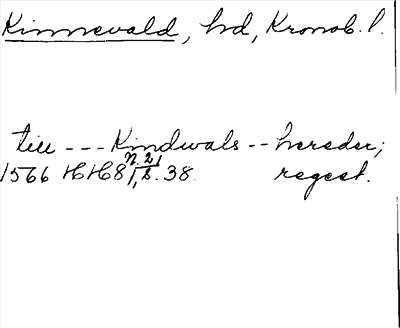 Kinnevald, hd, Kronob. l.
till --- Kindwals -- hereder;
n. 21
1566 HH 8/1, s. 38. regest.